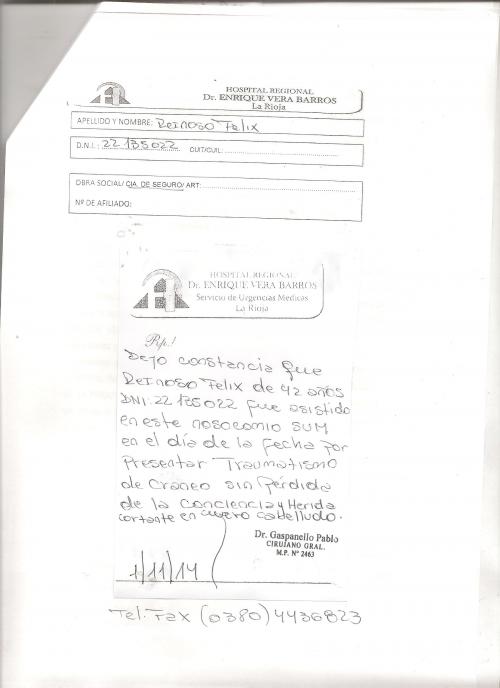 HOSPITAL REGIONAL
Dr. ENRIQUE VERA BARROS
La Rioja
APELLIDO Y NOMBRE: Reinoso Felix
D.N.I.: 22 135022 CUIT/CUIL:
OBRA SOCIAL/ CIA. DE SEGURO/ ART:
Nº DE AFILIADO:
HOSPITAL REGIONAL
Dr. ENRIQUE VERA BARROS
Servicio de Urgencias Medicas
La Rioja
Rp.!
Dejo constancia que
Reinoso Felix de 42 años
DNI: 22 135022 fue asistido
en este nosocomio SUM
en el día de la fecha por
Presentar Traumatismo
de Craneo sin Pérdida
de la conciencia y Herida
cortante en cuero cabelludo.
Dr. Gaspanello Pablo
CIRUJANO GRAL.
M.P. Nº 2463
1/11/14
Tel. Fax (0380) 4436823